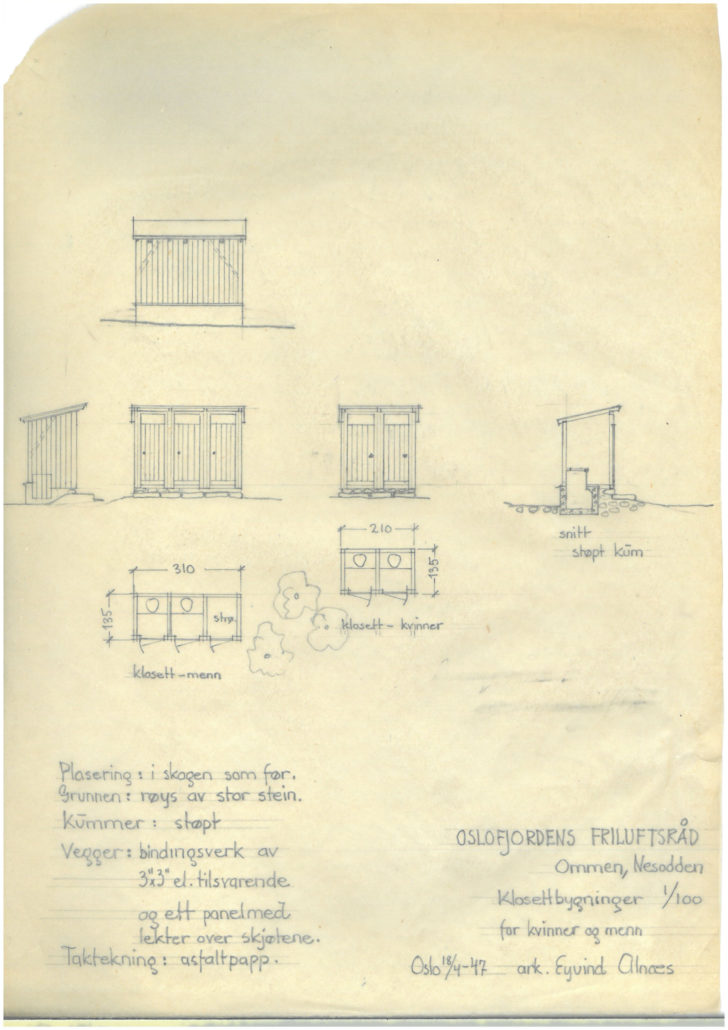 snitt
støpt kum
210
135
310
135
strø.
klosett - kvinner
klosett - menn
Plasering : i skogen som før.
Grunnen : røys av stor stein.
Kummer : støpt
Vegger : bindingsverk av
3"x3" el. tilsvarende
og ett panel med
lekter over skjøtene.
Taktekning : asfaltpapp.
OSLOFJORDENS FRILUFTSRÅD
Ommen, Nesodden
Klosettbygninger 1/100
for kvinner og menn
Oslo 18/4-47 ark. Eyvind Alnæs